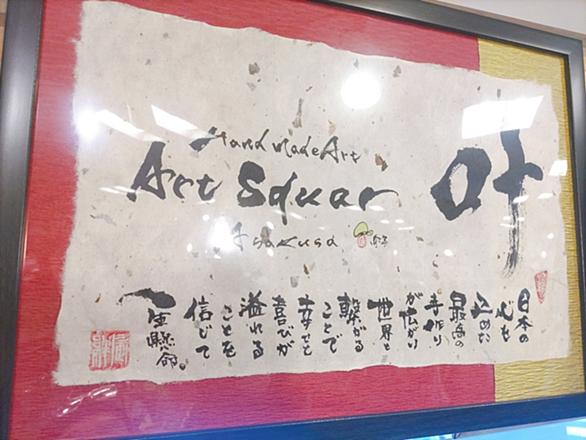 HandMadeArt
Art Squar
Asakusa
叶
日本の
心を
込めた
最高の
手作り
が広がり
世界と
繋がる
ことで
幸せと
喜びが
溢れる
ことを
信じて
一生懸命。